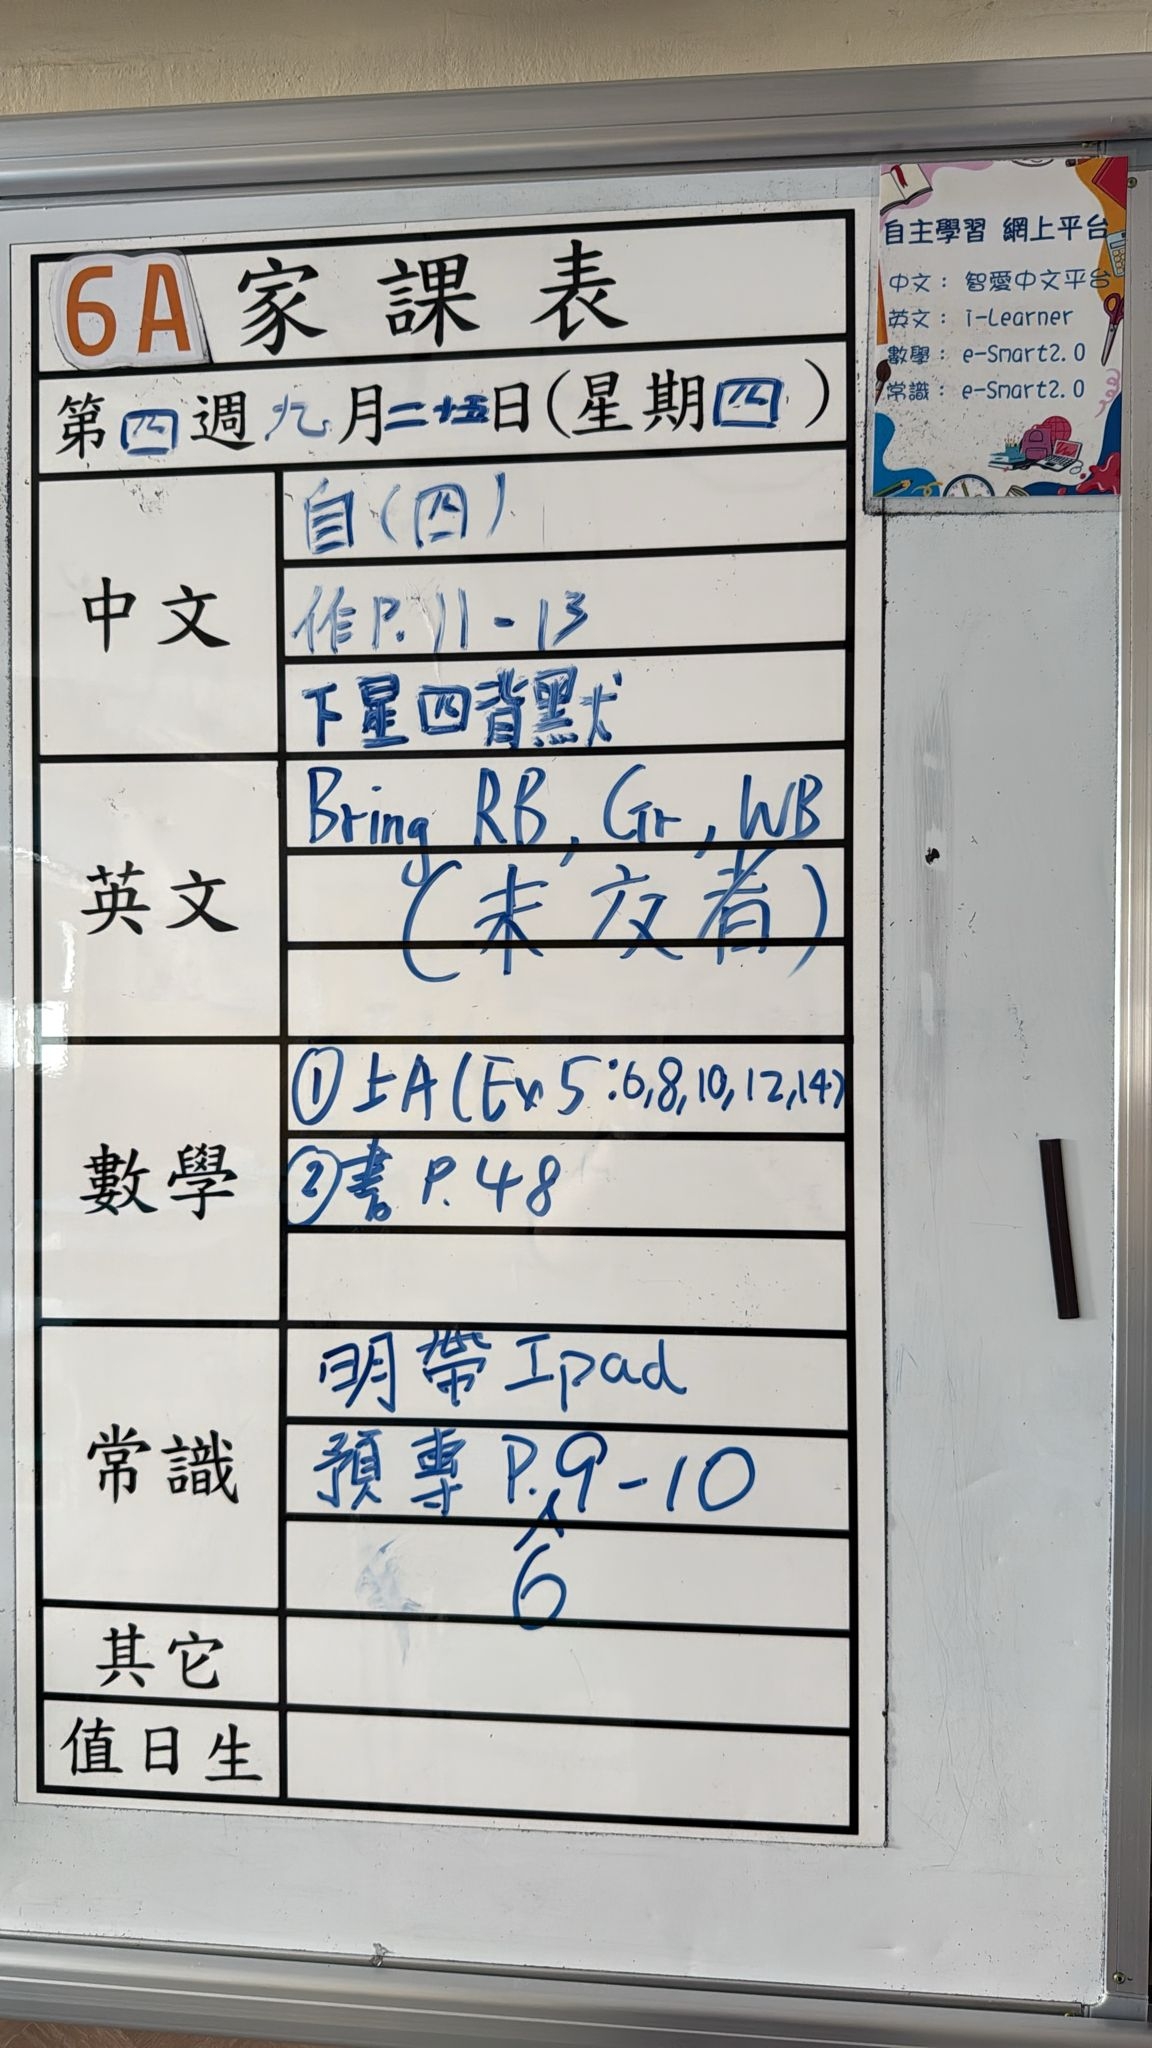 6A 家課表
第四週九月二十五日(星期四)
中文
自(四)
作P.11-13
下星四背默
英文
Bring RB, Gr, WB
(未交者)
數學
①上A(Ex 5:6,8,10,12,14)
②書 P.48
常識
明帶Ipad
預專 P.9-10
6
其它
值日生
自主學習 網上平台
中文: 智愛中文平台
英文: i-Learner
數學: e-Smart2.0
常識: e-Smart2.0